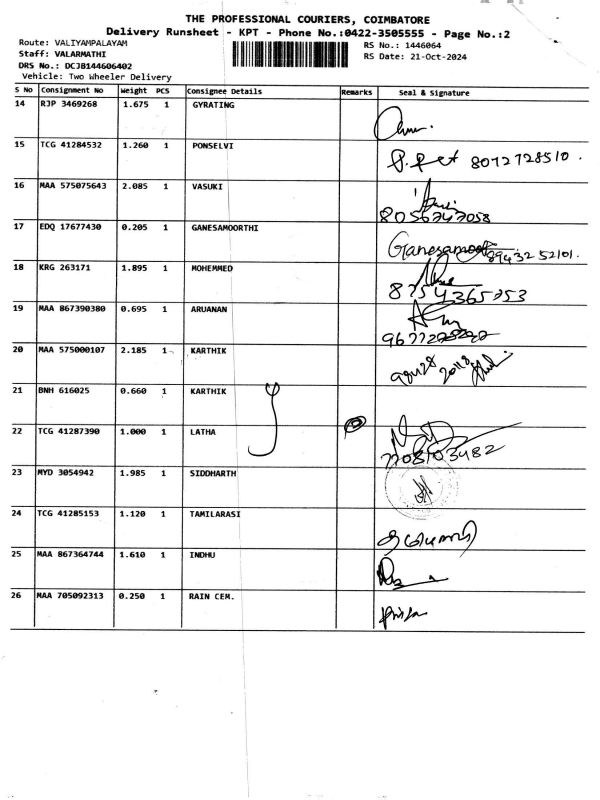 THE PROFESSIONAL COURIERS, COIMBATORE
Delivery Runsheet - KPT - Phone No.:0422-3505555 - Page No.:2
Route: VALIYAMPALAYAM
RS No.: 1446064
Staff: VALARMATHI
RS Date: 21-Oct-2024
DRS No.: DCJB144606402
Vehicle: Two Wheeler Delivery
S No Consignment No Weight PCS Consignee Details Remarks Seal & Signature
14 RJP 3469268 1.675 1 GYRATING
15 TCG 41284532 1.260 1 PONSELVI
8072728510.
16 MAA 575075643 2.085 1 VASUKI
8056747058
17 EDQ 17677430 0.205 1 GANESAMOORTHI
Ganesamoorthi 89432 52101.
18 KRG 263171 1.895 1 MOHEMMED
8754365353
19 MAA 867390380 0.695 1 ARUANAN
20 MAA 575000107 2.185 1 KARTHIK
98428 20118
21 BNH 616025 0.660 1 KARTHIK
22 TCG 41287390 1.000 1 LATHA
7708103482
23 MYD 3054942 1.985 1 SIDDHARTH
24 TCG 41285153 1.120 1 TAMILARASI
25 MAA 867364744 1.610 1 INDHU
26 MAA 705092313 0.250 1 RAIN CEM.